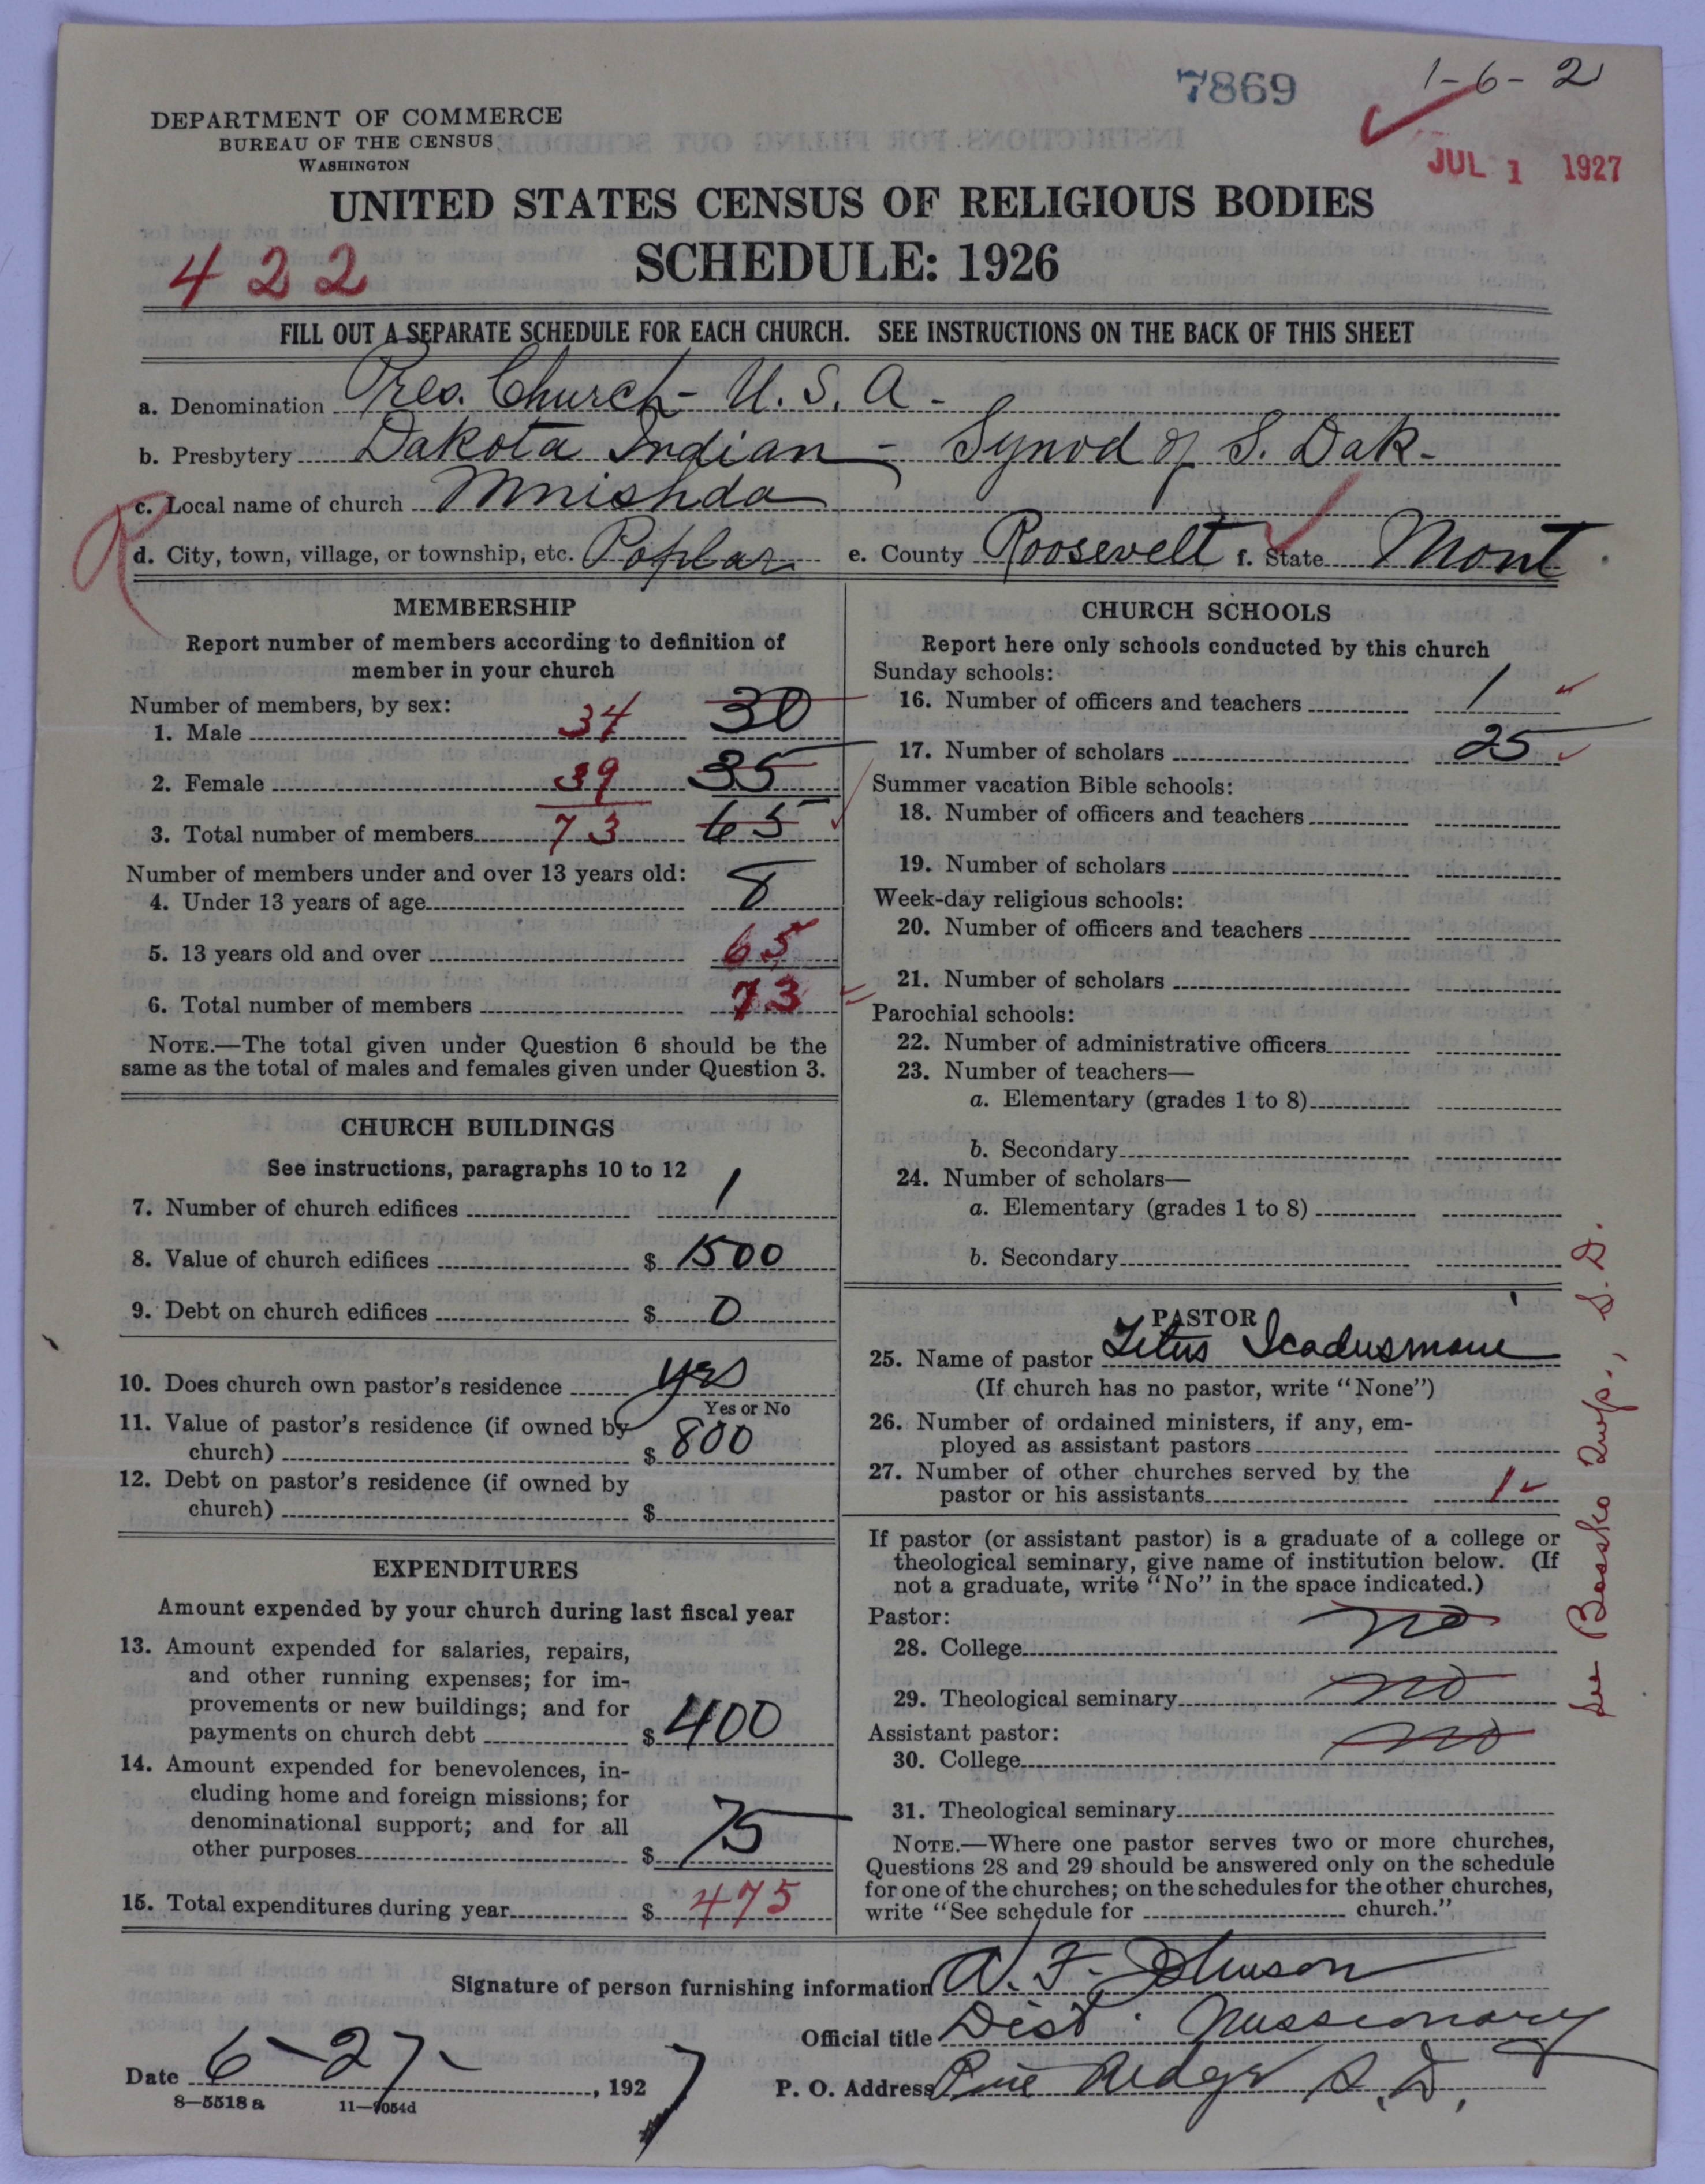 7869
1-6-2
JUL 1 1927
DEPARTMENT OF COMMERCE
BUREAU OF THE CENSUS
WASHINGTON
UNITED STATES CENSUS OF RELIGIOUS BODIES
SCHEDULE: 1926
422
FILL OUT A SEPARATE SCHEDULE FOR EACH CHURCH. SEE INSTRUCTIONS ON THE BACK OF THIS SHEET
a. Denomination Pres. Church - U. S. A -
b. Presbytery Dakota Indian - Synod of S. Dak -
c. Local name of church Mnishda
d. City, town, village, or township, etc. Poplar e. County Roosevelt f. State Mont
R
MEMBERSHIP
Report number of members according to definition of
member in your church
Number of members, by sex:
1. Male 34 30
2. Female 39 35
3. Total number of members 73 65
Number of members under and over 13 years old:
4. Under 13 years of age 8
5. 13 years old and over 65
6. Total number of members 73
NOTE.—The total given under Question 6 should be the
same as the total of males and females given under Question 3.
CHURCH BUILDINGS
See instructions, paragraphs 10 to 12
7. Number of church edifices 1
8. Value of church edifices $ 1500
9. Debt on church edifices $ 0
10. Does church own pastor's residence yes
Yes or No
11. Value of pastor's residence (if owned by
church) $ 800
12. Debt on pastor's residence (if owned by
church) $
EXPENDITURES
Amount expended by your church during last fiscal year
13. Amount expended for salaries, repairs,
and other running expenses; for im-
provements or new buildings; and for
payments on church debt $ 400
14. Amount expended for benevolences, in-
cluding home and foreign missions; for
denominational support; and for all
other purposes $ 75
15. Total expenditures during year $ 475
CHURCH SCHOOLS
Report here only schools conducted by this church
Sunday schools:
16. Number of officers and teachers 1
17. Number of scholars 25
Summer vacation Bible schools:
18. Number of officers and teachers
19. Number of scholars
Week-day religious schools:
20. Number of officers and teachers
21. Number of scholars
Parochial schools:
22. Number of administrative officers
23. Number of teachers—
a. Elementary (grades 1 to 8)
b. Secondary
24. Number of scholars—
a. Elementary (grades 1 to 8)
b. Secondary
PASTOR
25. Name of pastor Titus Icadusmani
(If church has no pastor, write "None")
26. Number of ordained ministers, if any, em-
ployed as assistant pastors
27. Number of other churches served by the
pastor or his assistants 1
If pastor (or assistant pastor) is a graduate of a college or
theological seminary, give name of institution below. (If
not a graduate, write "No" in the space indicated.)
Pastor:
28. College no
29. Theological seminary no
Assistant pastor:
30. College no
31. Theological seminary
NOTE.—Where one pastor serves two or more churches,
Questions 28 and 29 should be answered only on the schedule
for one of the churches; on the schedules for the other churches,
write "See schedule for church."
See Twp., S. D.
Signature of person furnishing information A. F. Johnson
Official title Dist. Missionary
Date 6-27-, 1927 P. O. Address Pine Ridge S. D.
8—5518 a 11—9054d